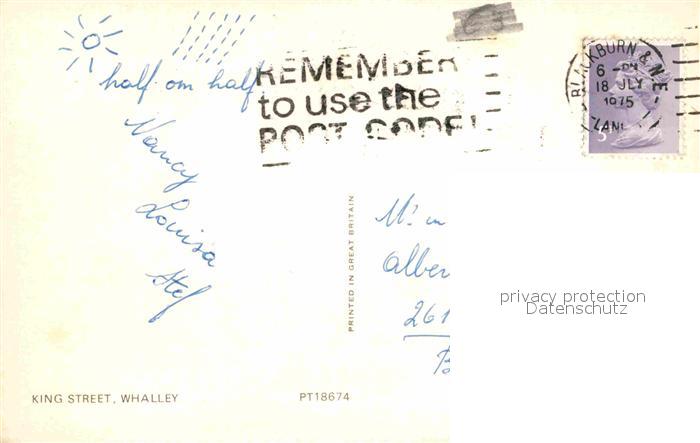 half om half
Nancy
Louisa
Stef
REMEMBER
to use the
POST CODE!
BLACKBURN &
6 - PM
18 JLY
1975
LANC
PRINTED IN GREAT BRITAIN
Alber
261
privacy protection
Datenschutz
KING STREET, WHALLEY
PT18674